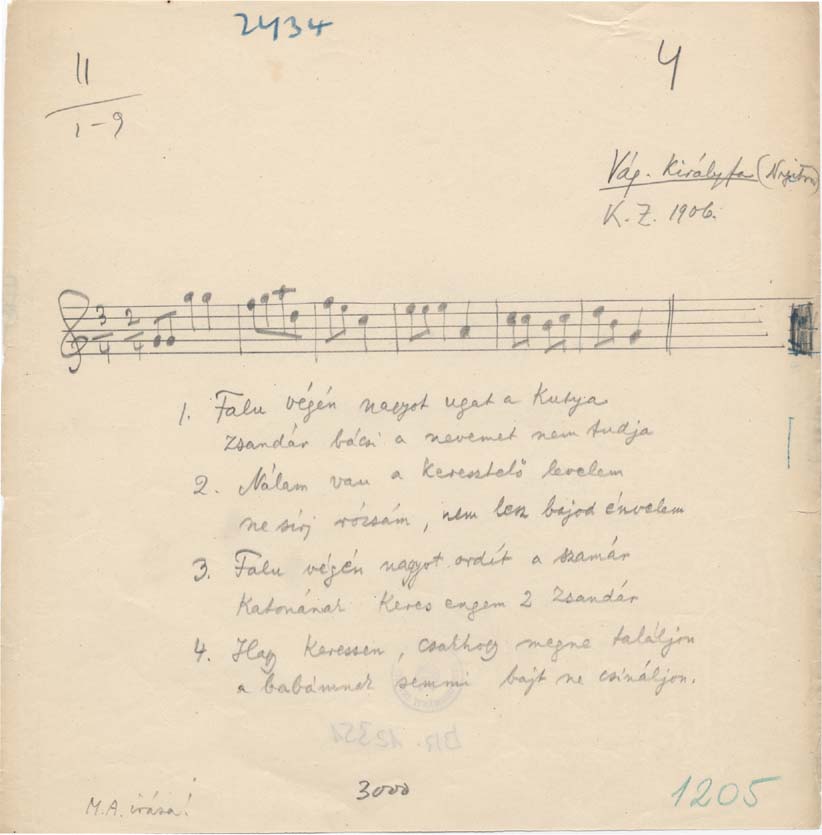 2434
II
1-9
4
Vág-Királyfa (Nyitra)
K. Z. 1906.
3
4
2
4
1. Falu végén nagyot ugat a kutya
Zsandár bácsi a nevemet nem tudja
2. Nálam van a keresztelő levelem
ne sírj rózsám, nem lesz bajod énvelem
3. Falu végén nagyot ordít a szamár
Katonának keres engem 2 Zsandár
4. Hagy keressen, csakhogy megne találjon
a babámnak semmi bajt ne csináljon.
BR. 12351
3000
1205
M.A. írása!